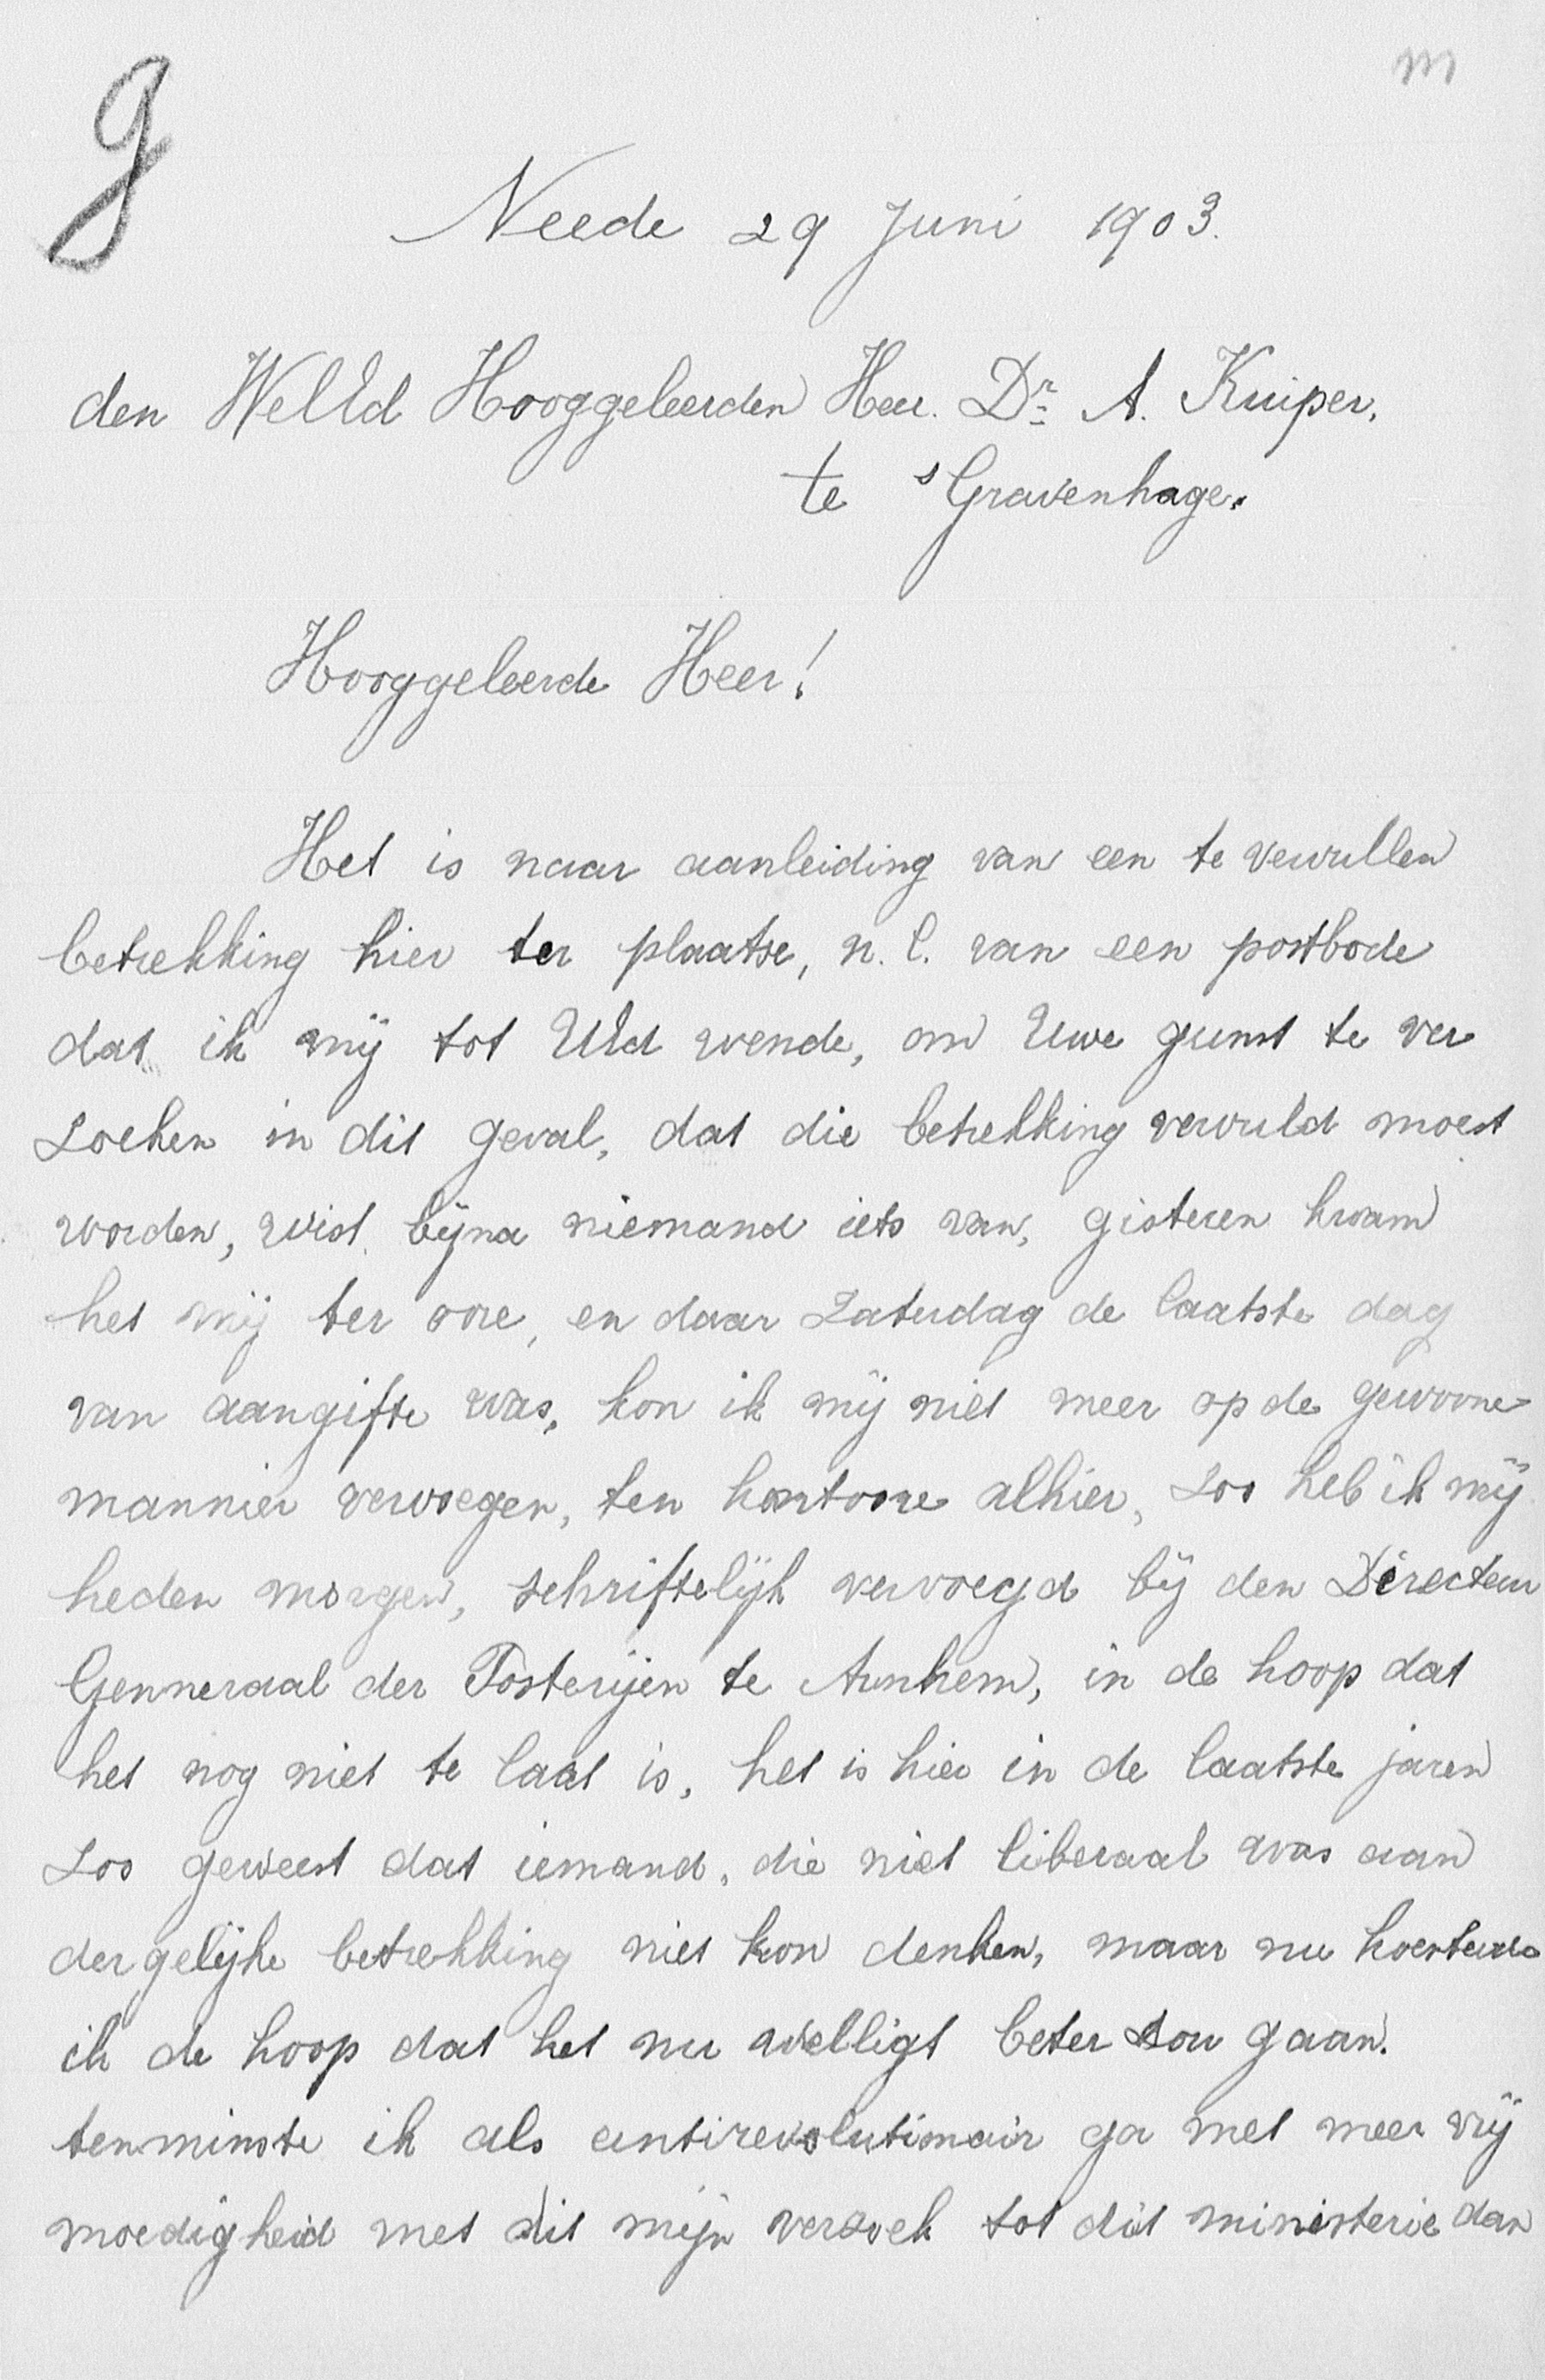 g
m
Neede 29 Juni 1903.
den WelEd Hooggeleerden Heer. Dr. A. Kuiper,
te s Gravenhage.
Hooggeleerde Heer!
Het is naar aanleiding van een te vervullen
betrekking hier ter plaatse, n.l. van een postbode
dat ik mij tot UEd wende, om Uwe gunst te ver
zoeken in dit geval, dat die betrekking vervuld moest
worden, wist bijna niemand iets van, gisteren kwam
het mij ter oore, en daar Zaterdag de laatste dag
van aangifte was, kon ik mij niet meer op de gewoone
mannier vervoegen, ten kantoore alhier, zoo heb ik mij
heden morgen, schriftelijk vervoegd bij den Directeur
Genneraal der Posterijen te Arnhem, in de hoop dat
het nog niet te laat is, het is hier in de laatste jaren
zoo geweest dat iemand, die niet liberaal was aan
dergelijke betrekking niet kon denken, maar nu koesterde
ik de hoop dat het nu welligt beter zou gaan.
tenminste ik als antirevolutionair ga met meer vrij
moedigheid met dit mijn verzoek tot dit ministerie dan